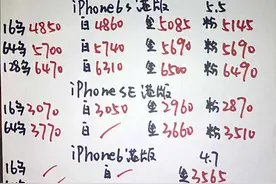 iPhone6s港版 5.5
16G 4850 白4860 金5085 粉5145
64G 5700 白5740 金5690 粉5690
128G 6470 白6310 金6500 粉6490
iPhoneSE港版
16G 3070 白3050 金2960 粉2870
64G 3770 白 金3660 粉3510
iPhone6港版 4.7
16G 白 金3565